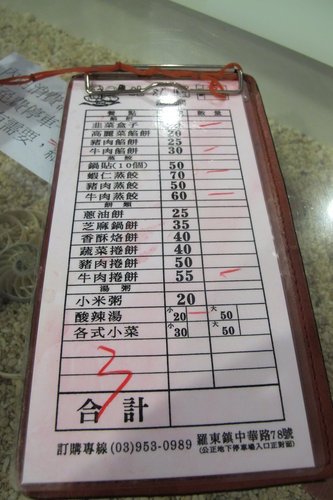 餐點 數量
韭菜盒子
高麗菜餡餅 20
豬肉餡餅 25
牛肉餡餅 30
蒸餃
鍋貼(10個) 50
蝦仁蒸餃 70
豬肉蒸餃 50
牛肉蒸餃 60
餅類
蔥油餅 25
芝麻鍋餅 35
香酥烙餅 40
蔬菜捲餅 40
豬肉捲餅 50
牛肉捲餅 55
湯粥
小米粥 20
酸辣湯 小20 大50
各式小菜 小30 大50
3
合計
訂購專線 (03)953-0989 羅東鎮中華路78號
(公正地下停車場入口正對面)